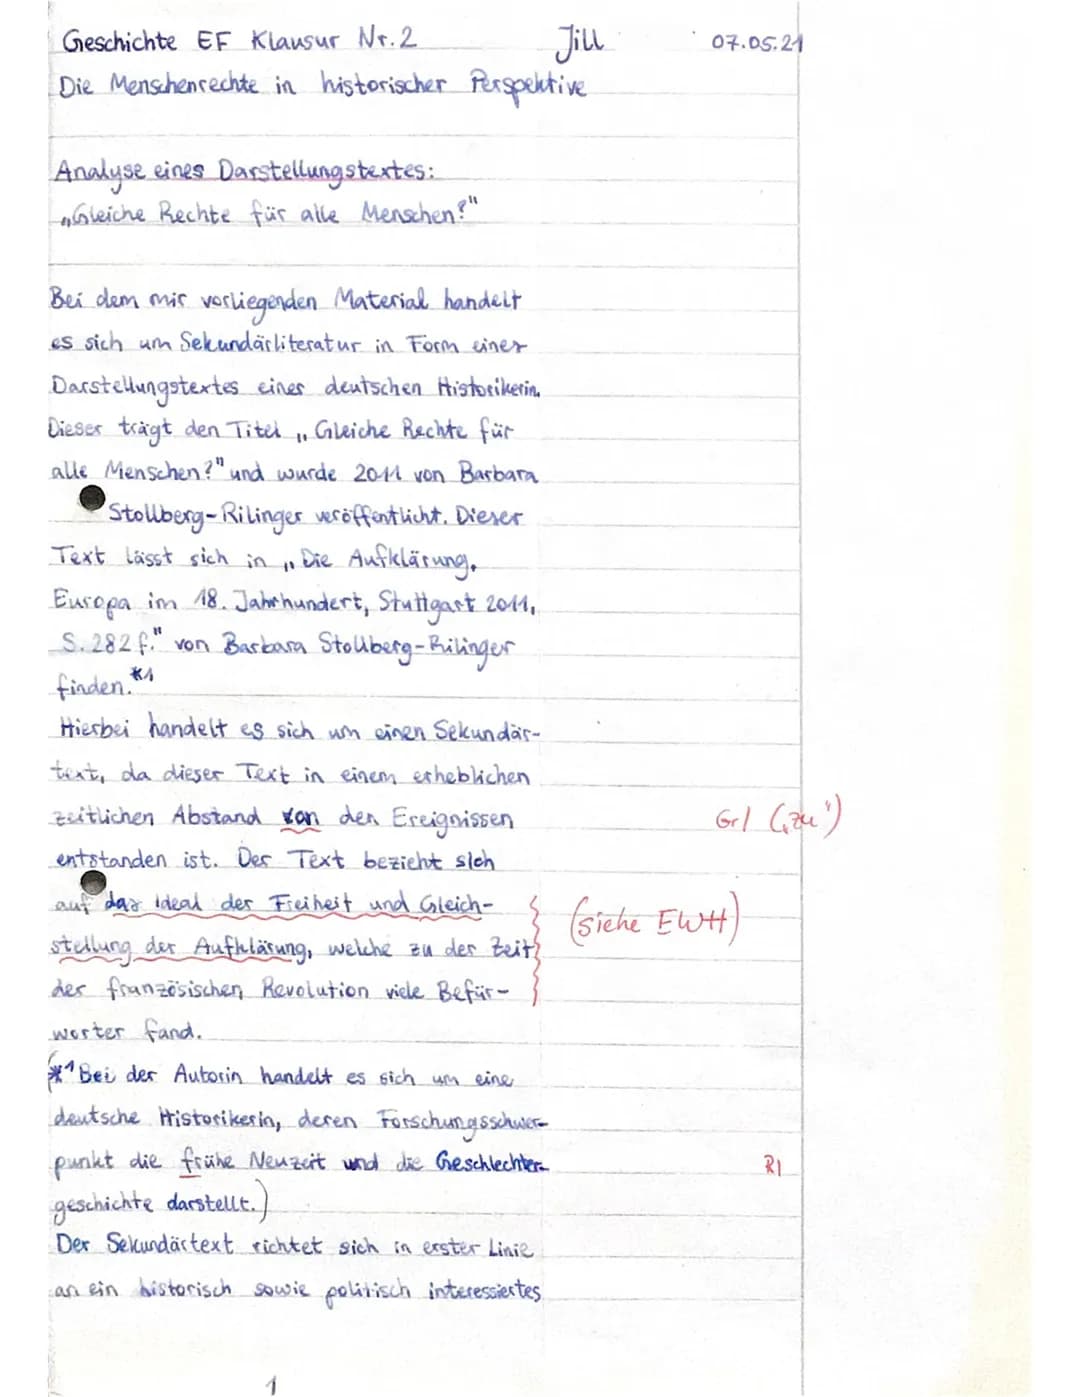 Geschichte EF Klausur Nr. 2 Jill 07.05.21
Die Menschenrechte in historischer Perspektive
Analyse eines Darstellungstextes:
„Gleiche Rechte für alle Menschen?"
Bei dem mir vorliegenden Material handelt
es sich um Sekundärliteratur in Form eines
Darstellungstextes einer deutschen Historikerin.
Dieser trägt den Titel „Gleiche Rechte für
alle Menschen?" und wurde 2011 von Barbara
Stollberg-Rilinger veröffentlicht. Dieser
Text lässt sich in „Die Aufklärung,
Europa im 18. Jahrhundert, Stuttgart 2011,
S. 282 f." von Barbara Stollberg-Rilinger
finden. *1
Hierbei handelt es sich um einen Sekundär-
text, da dieser Text in einem erheblichen
zeitlichen Abstand von den Ereignissen Gr/ („zu")
entstanden ist. Der Text bezieht sich
auf das Ideal der Freiheit und Gleich- (siehe EWH)
stellung der Aufklärung, welche zu der Zeit
der französischen Revolution viele Befür-
worter fand.
*1 Bei der Autorin handelt es sich um eine
deutsche Historikerin, deren Forschungsschwer-
punkt die frühe Neuzeit und die Geschlechter- R/
geschichte darstellt.)
Der Sekundärtext richtet sich in erster Linie
an ein historisch sowie politisch interessiertes
1